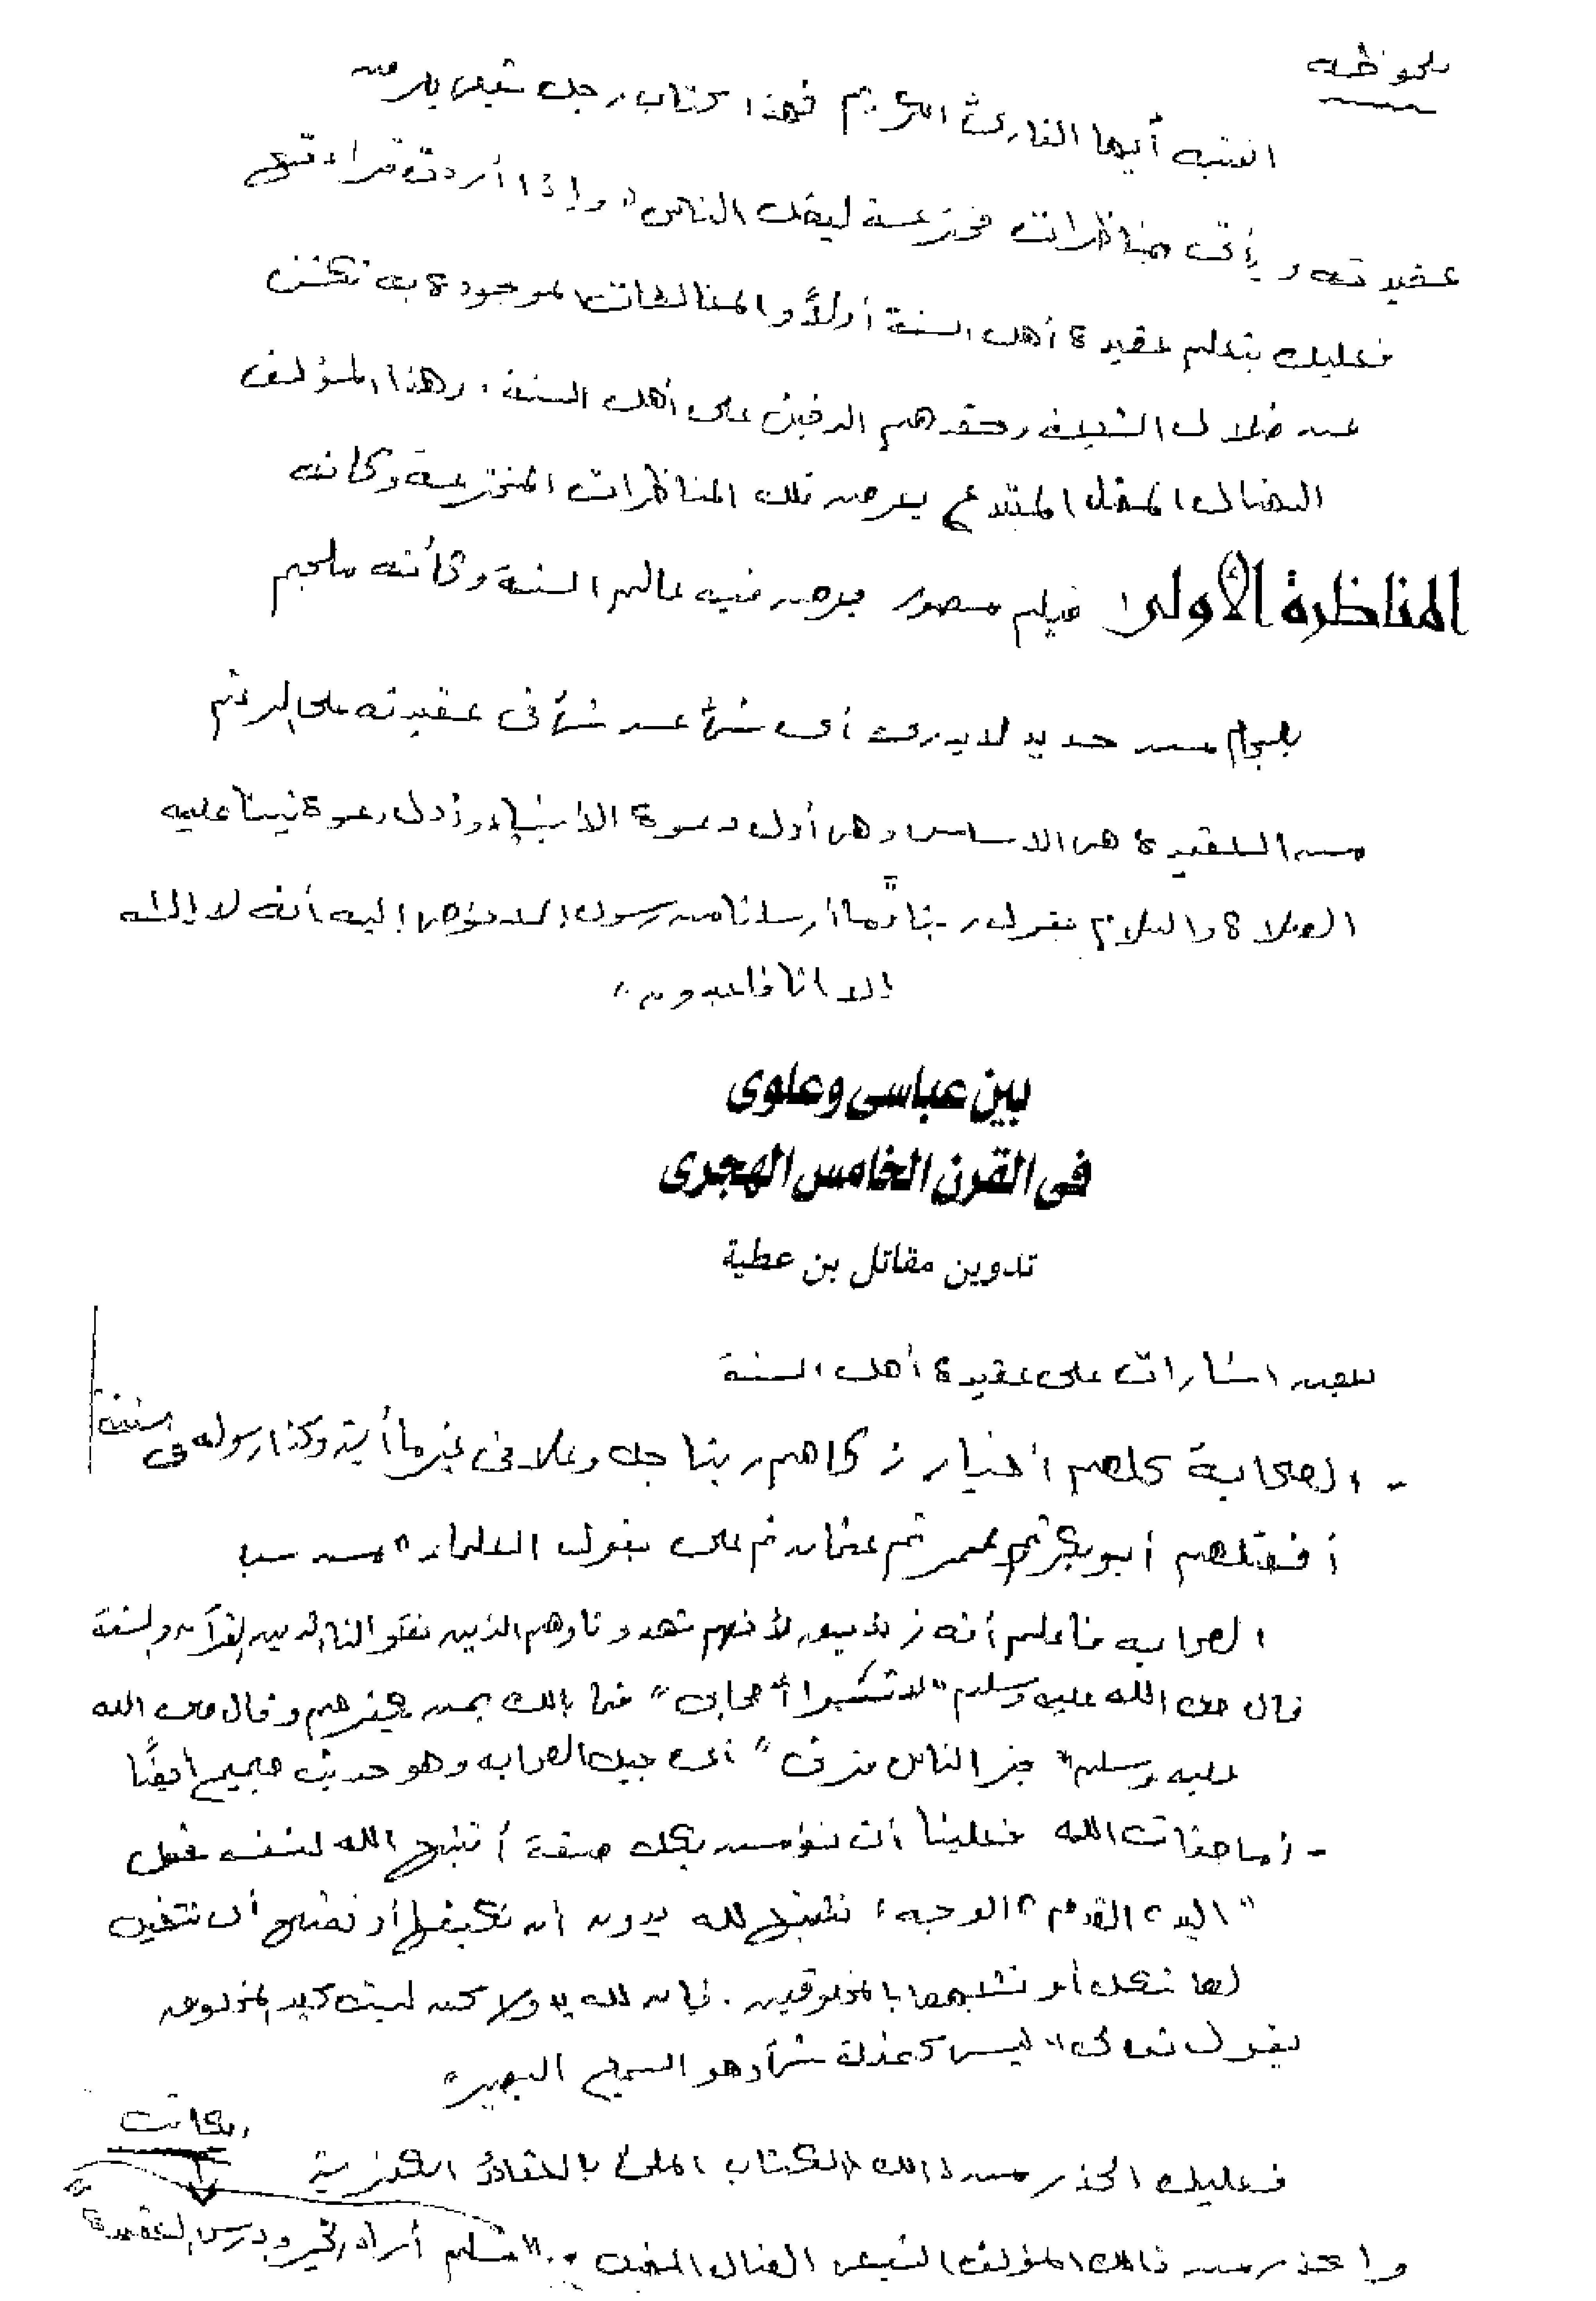 ملحوظه
انتبه أيها القارئ الكريم فهذا كتاب رجل شيعى يعرض
عقيدته ويأتى بمناظرات مخترعة ليضل الناس" وإذا أردت قراءته
فعليك بتعلم عقيدة أهل السنة أولاً والمخالفات الموجودة به تكشف
عن ضلال الشيعة وحقدهم الدفين على أهل السنة. وهذا المؤلف
الضال المضل المبتدع يعرض تلك المناظرات المخترعة وكأنه
المناظرة الأولى
فيلم مصور يعرض فيه عالم السنة وكأنه ملجم
بلجام من حديد لا يدرى أى شئ عن شئ فى عقيدته على الرغم
من العقيدة هى الاساس وهى أول دعوة الأنبياء وأول دعوة نبينا عليه
الصلاة والسلام يقول ربنا "وما أرسلنا من رسول إلا نوحى إليه أنه لا إله
إلا انا فاعبدون"
بين عباسى وعلوى
فى القرن الخامس الهجرى
تدوين مقاتل بن عطية
بعض اشارات على عقيدة أهل السنة
- الصحابة كلهم أخيار زكاهم ربنا جل وعلا فى غير ما أية وكذا رسوله فى سنته
أفضلهم أبو بكر ثم عمر ثم عثمان ثم على يقول العلماء "من سب
الصحابه فاعلم أنه زنديق لأنهم شهدونا وهم الذين نقلو النا الدين القرآن والسنة
قال صلى الله عليه وسلم "لا تسبوا أصحابى" فما بالك بمن يكفرهم وقال صلى الله
عليه وسلم "خير الناس قرنى" أى جيل الصحابه وهو حديث صحيح أيضًا
- أما صفات الله فعلينا أن نؤمن بكل صفة أثبتها الله لنفسه فمثل
"اليد، القدم، الوجه، نثبتها لله بدون ان نكيفها أو نمثلها أى نتخيل
لها شكل أو نشبهها بالمخلوقين. فإن لله يد ولاكن ليست كيد المخلوق
يقول تعالى "ليس كمثله شئ وهو السميع البصير"
فعليك الحذر من ذالك الكتاب الملئ بالعقائد الكفرية
الكاتب
واحذر من ذالك المؤلف الشيعى الضال المضل .. "مسلم أراد الخير ودرس العقيدة"